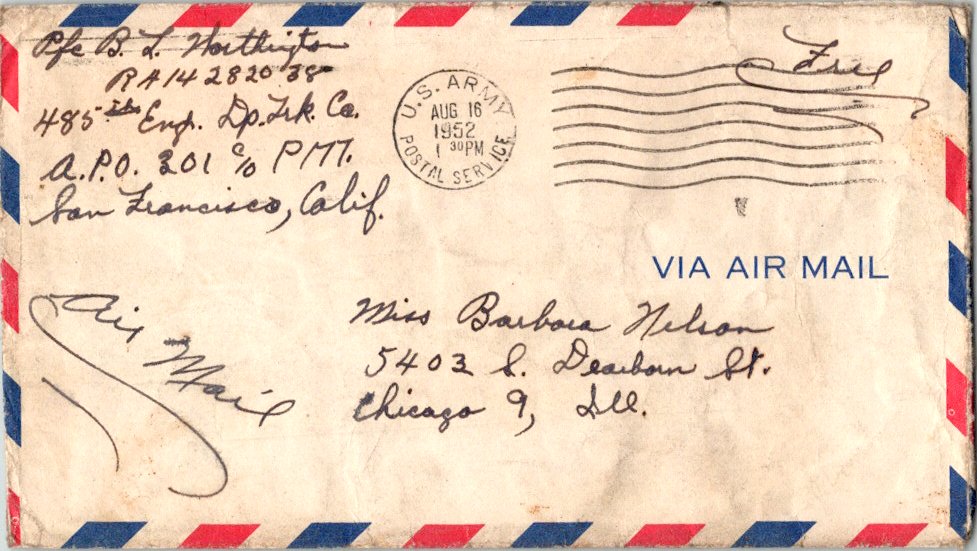 Pfc B. L. Worthington
RA 14 2820 38
485th Engr. Dp. Trk. Co.
A.P.O. 301 c/o P.M.
San Francisco, Calif.
U.S. ARMY
AUG 16
1952
1 30 PM
POSTAL SERVICE
Free
VIA AIR MAIL
Air Mail
Miss Barbara Nelson
5403 S. Dearborn St.
Chicago 9, Ill.